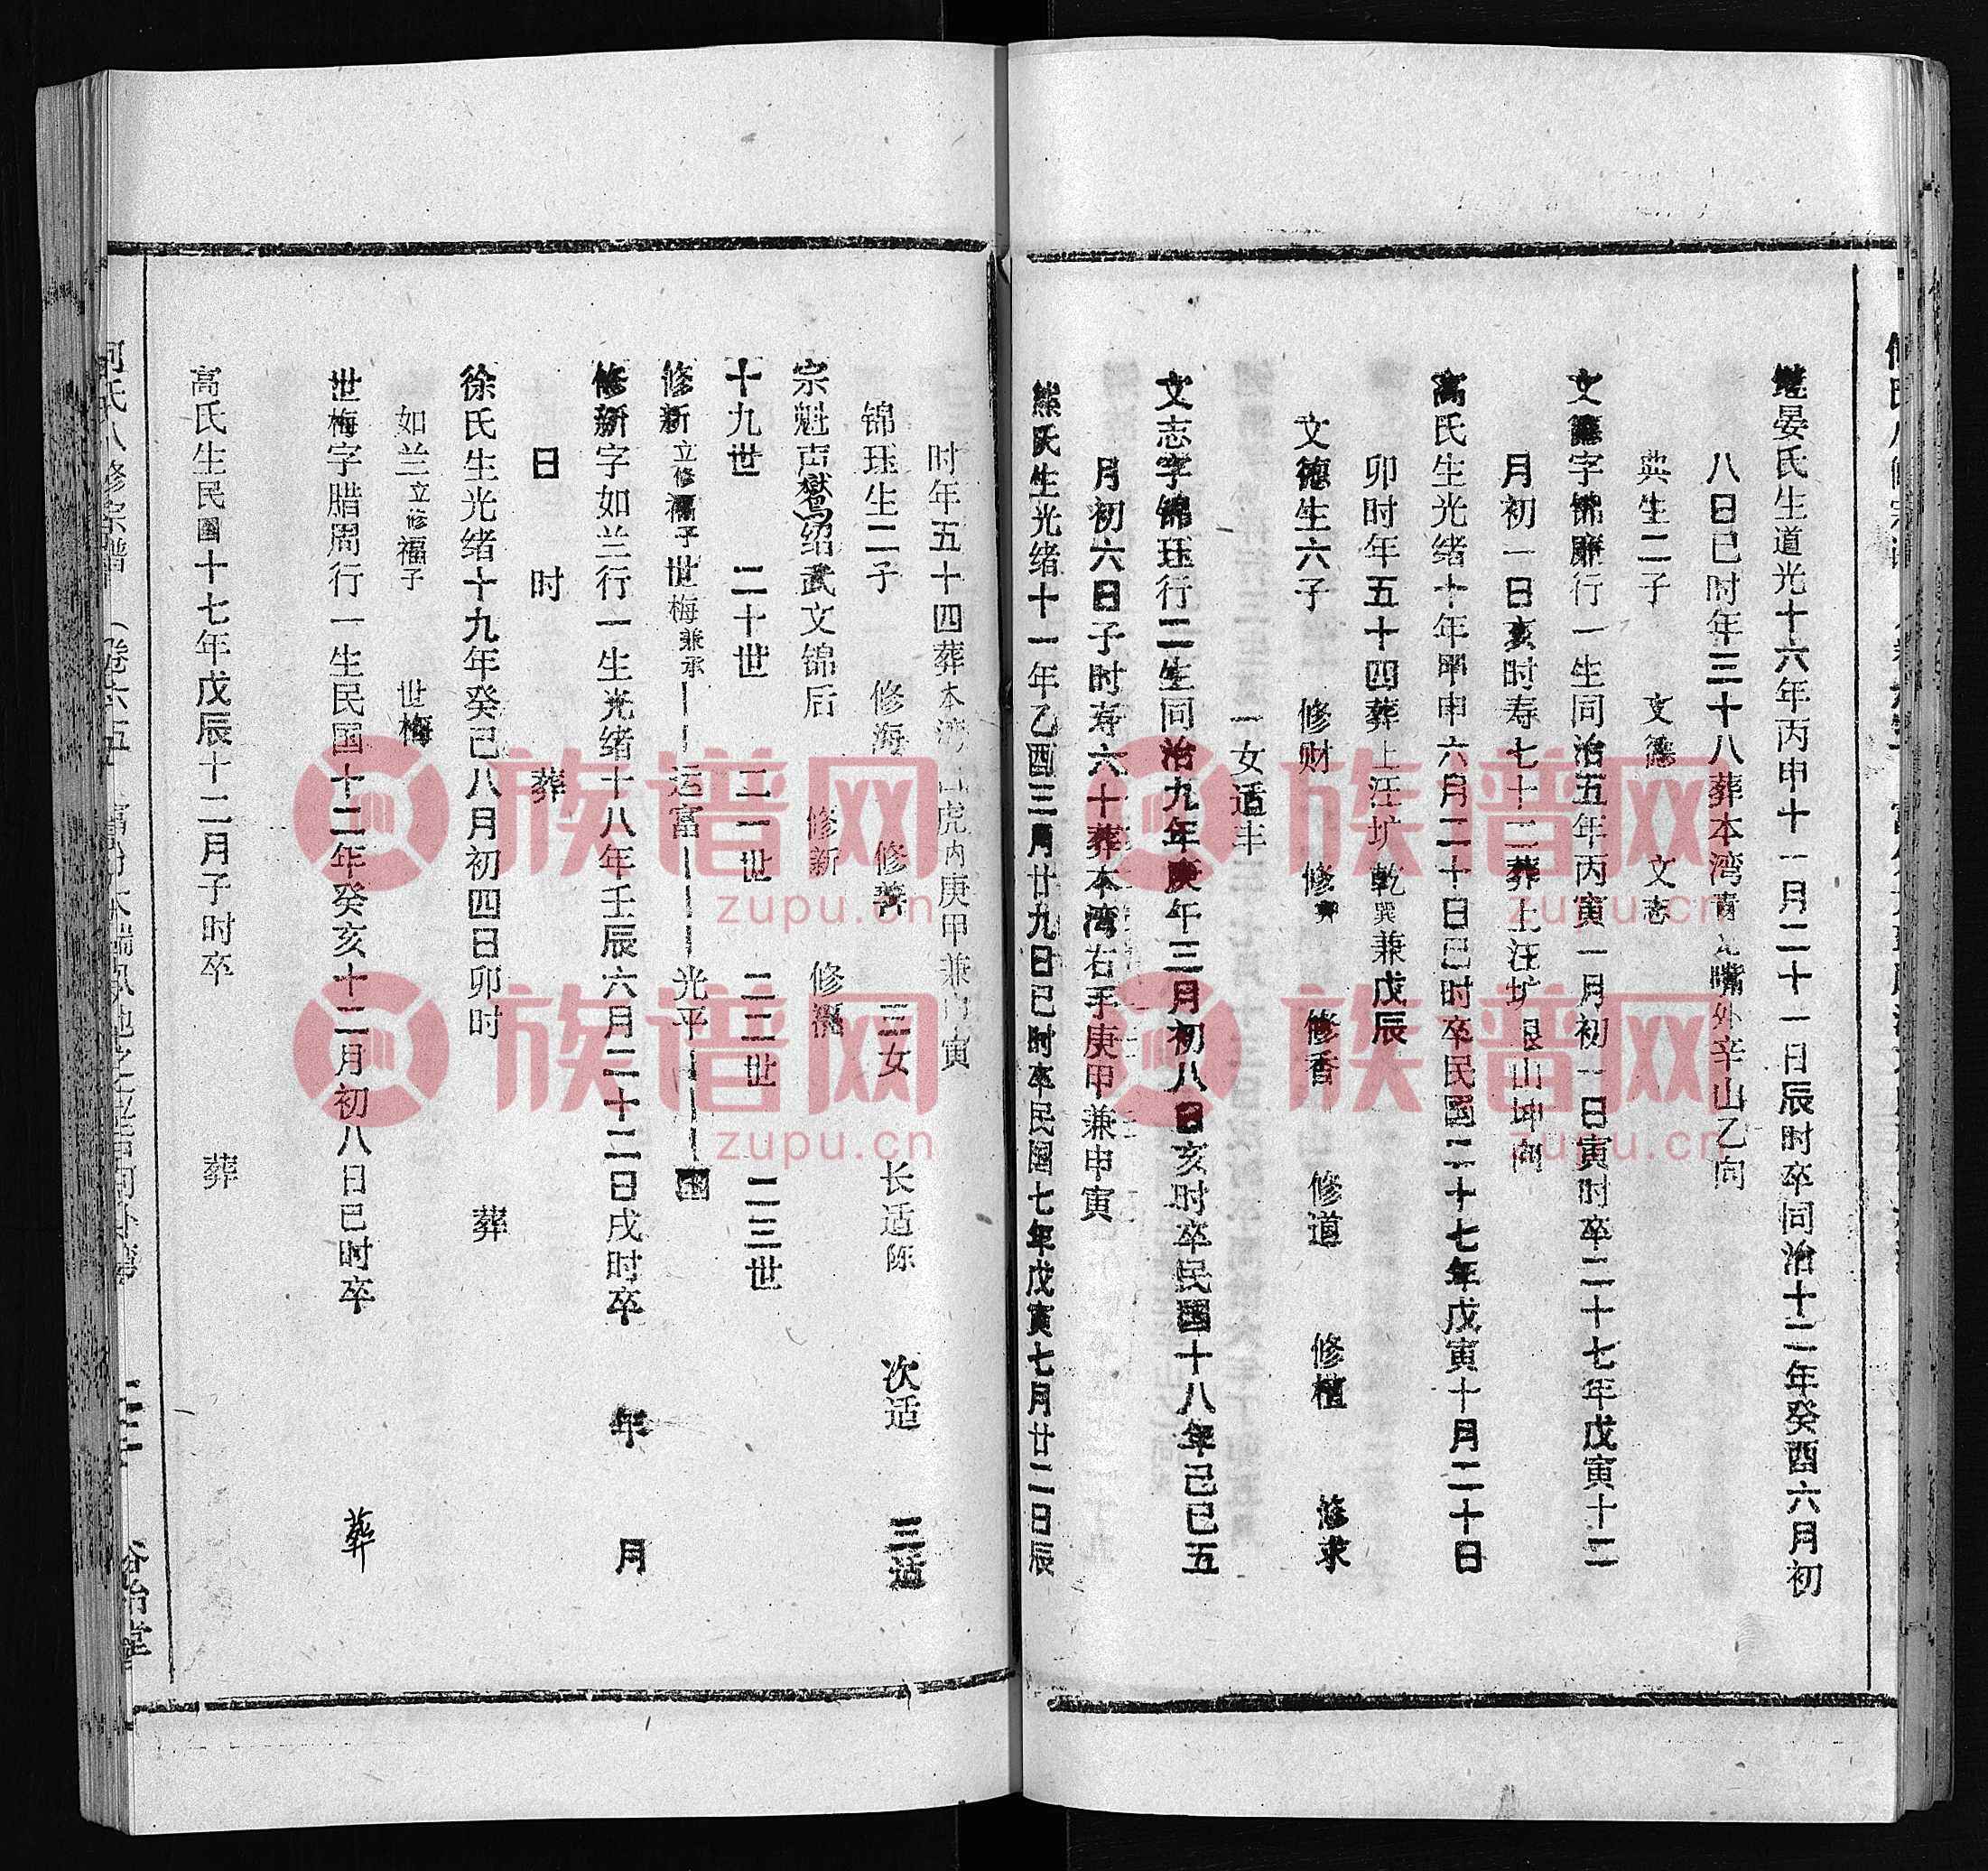 继晏氏生道光十六年丙申十一月二十一日辰时卒同治十二年癸酉六月初
八日巳时年三十八葬本湾青 嘴外辛山乙向
典生二子 文德 文志
文德字锦 行一生同治五年丙寅一月初一日寅时卒二十七年戊寅十二
月初一日亥时寿七十二葬上汪圹艮山坤向
高氏生光绪十年甲申六月二十日巳时卒民国二十七年戊寅十月二十日
卯时年五十四葬上汪圹乾巽兼戊辰
文德生六子 修财 修 修香 修道 修 修求
一女适丰
文志字锦珏行二生同治九年庚午三月初八日亥时卒民国十八年己巳五
月初六日子时寿六十葬本湾右手庚甲兼申寅
熊氏生光绪十一年乙酉三月廿九日巳时卒民国七年戊寅七月廿二日辰
时年五十四葬本湾 虎内庚甲兼申寅
锦珏生二子 修海 修善 三女 长适陈 次适 三适
宗魁声 绍武文锦后 修新 修
十九世 二十世 二一世 二二世 二三世
修新立修福子 世梅兼承 运富 光平
修新字如兰行一生光绪十八年壬辰六月二十二日戌时卒 年 月
日 时 葬
徐氏生光绪十九年癸巳八月初四日卯时 葬
如兰立修福子 世梅
世梅字腊周行一生民国十二年癸亥十二月初八日巳时卒 葬
高氏生民国十七年戊辰十二月子时卒 葬
何氏八修宗谱 (卷六五
族谱网
zupu.cn
族谱网
zupu.cn
族谱网
zupu.cn
族谱网
zupu.cn